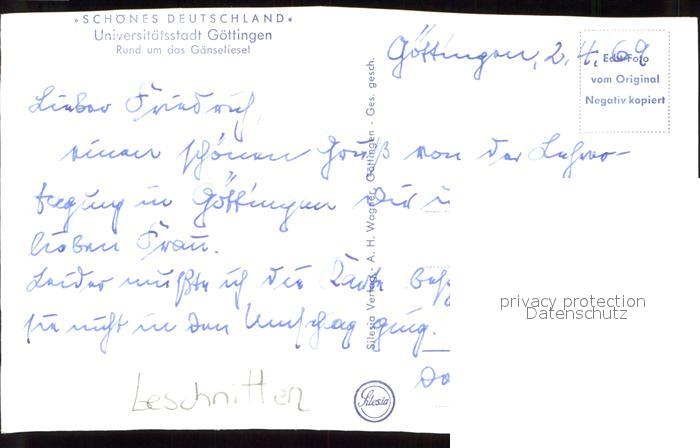 »SCHÖNES DEUTSCHLAND«
Universitätsstadt Göttingen
Rund um das Gänseliesel
Göttingen, 2. 4. 69
Echt Foto
vom Original
Negativ kopiert
Lieber Friedrich,
einen schönen Gruß von der Lehrer-
tagung in Göttingen Dir u
lieben Frau.
Leider mußte ich die Karte besch
sie nicht in den Umschlag ging.
Silesia Verlag · A. H. Wagner, Göttingen - Ges. gesch.
Silesia
beschnitten
privacy protection
Datenschutz